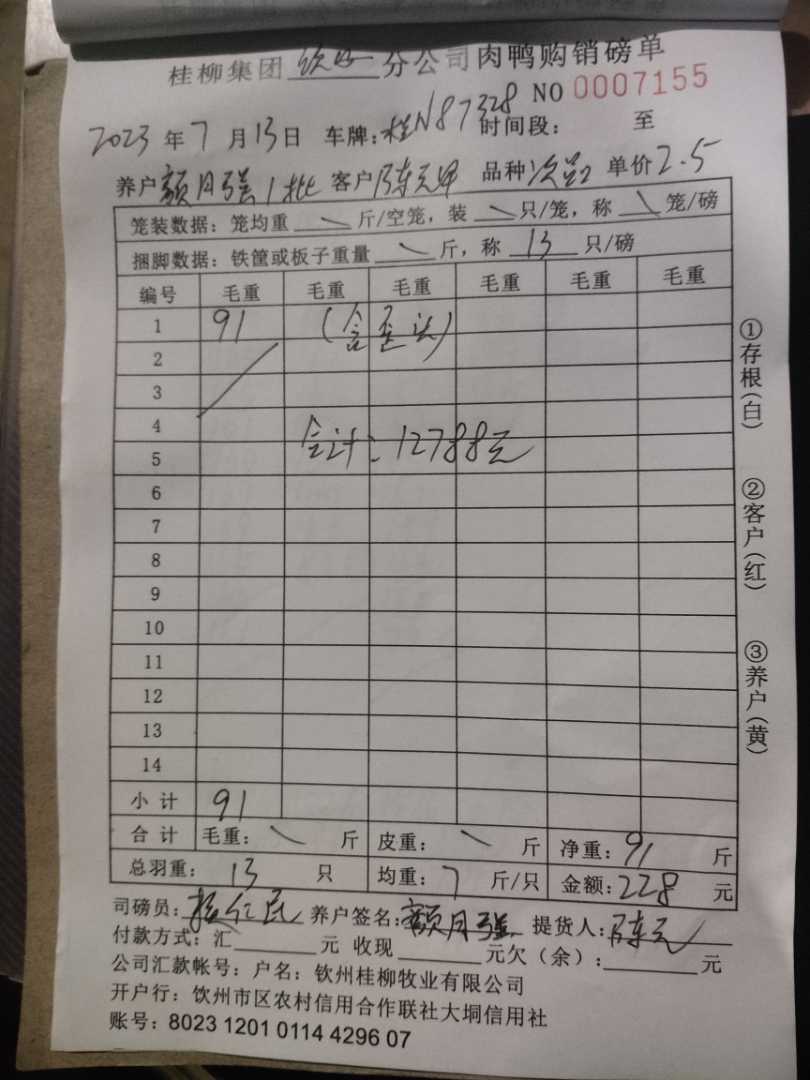 桂柳集团 钦州 分公司肉鸭购销磅单
NO 0007155
2023 年 7 月 13 日 车牌:桂N87328 时间段: 至
养户 额月强 1批 客户 陈元甲 品种 次品2 单价 2.5
笼装数据:笼均重 斤/空笼,装 只/笼,称 笼/磅
捆脚数据:铁筐或板子重量 斤,称 13 只/磅
编号 毛重 毛重 毛重 毛重 毛重 毛重
1 91 (含歪头)
2
3
4
合计:12788元
5
6
7
8
9
10
11
12
13
14
小计 91
合计 毛重: 斤 皮重: 斤 净重:91 斤
总羽重: 13 只 均重: 7 斤/只 金额:228 元
司磅员: 杨仁民 养户签名:额月强 提货人:陈元
付款方式:汇 元 收现 元欠(余): 元
公司汇款帐号:户名:钦州桂柳牧业有限公司
开户行:饮州市区农村信用合作联社大垌信用社
账号:8023 1201 0114 4296 07
①存根(白)
②客户(红)
③养户(黄)